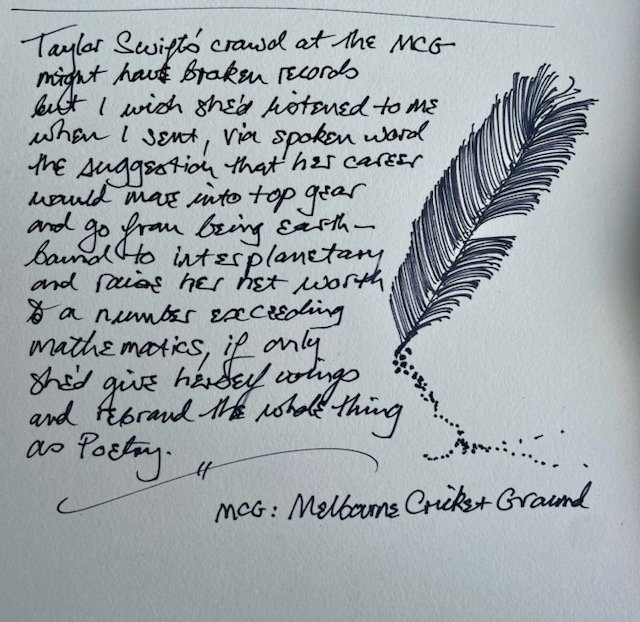 Taylor Swift's crowd at the MCG
might have broken records
but I wish she'd listened to me
when I sent, via spoken word
the suggestion that her career
would move into top gear
and go from being earth-
bound to interplanetary
and raise her net worth
to a number exceeding
mathematics, if only
she'd give herself wings
and rebrand the whole thing
as Poetry.
MCG: Melbourne Cricket Ground